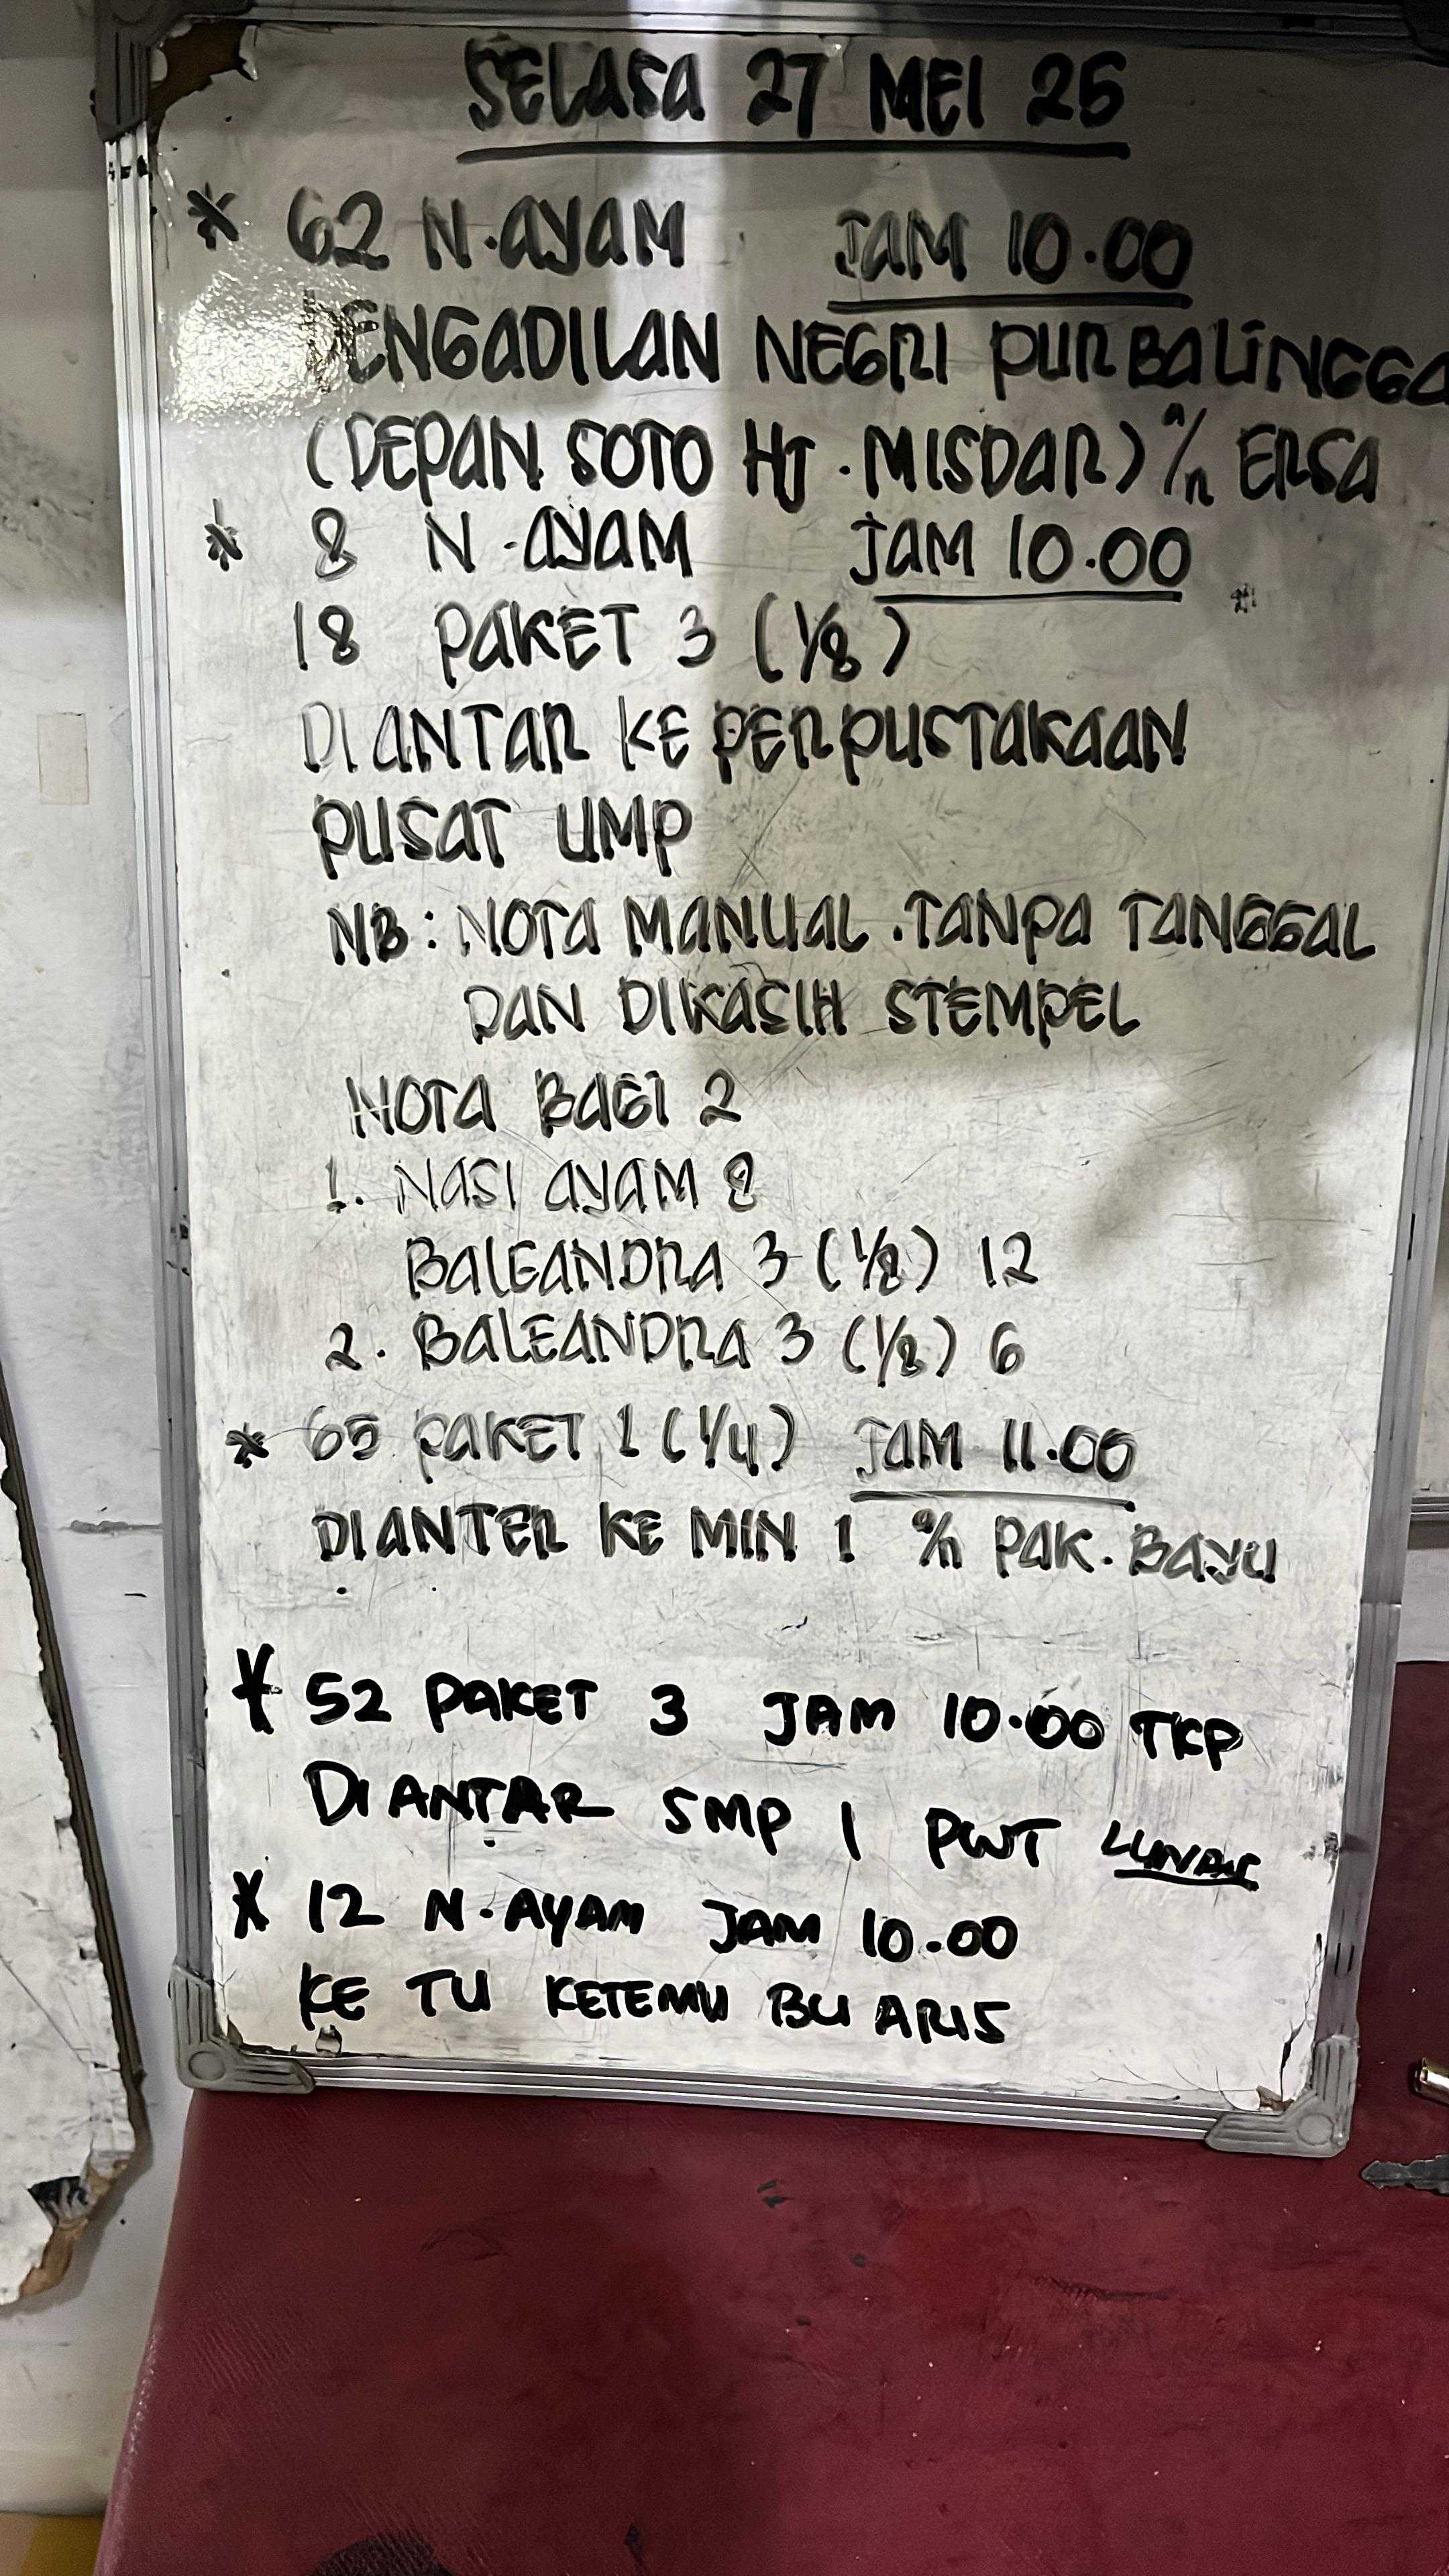 SELASA 27 MEI 25
* 62 N.AYAM JAM 10.00
PENGADILAN NEGRI PURBALINGGA
(DEPAN SOTO HJ.MISDAR) A/n ERSA
* 8 N.AYAM JAM 10.00
18 PAKET 3 (1/8)
DIANTAR KE PERPUSTAKAAN
PUSAT UMP
NB: NOTA MANUAL.TANPA TANGGAL
DAN DIKASIH STEMPEL
NOTA BAGI 2
1. NASI AYAM 8
BALEANDRA 3 (1/8) 12
2. BALEANDRA 3 (1/8) 6
* 65 PAKET 1 (1/4) JAM 11.00
DIANTER KE MIN 1 A/n PAK.BAYU
* 52 PAKET 3 JAM 10.00 TKP
DIANTAR SMP 1 PWT LUNAS
* 12 N.AYAM JAM 10.00
KE TU KETEMU BU ARIS